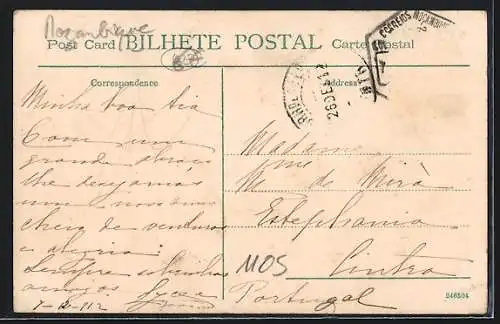 Moçambique
Post Card BILHETE POSTAL Carte Postal
CORREIOS MOÇAMBIQUE
26 DE 12
Correspondence
Address
Minha boa tia
Com um
grande abraço
lhe desejamos
um novo anno
cheio de venturas
e alegria.
Sempre sobrinhos
amigos
7-12-912
Madame
Me de Mirà
Estephania
Cintra
Portugal
MOS
246504